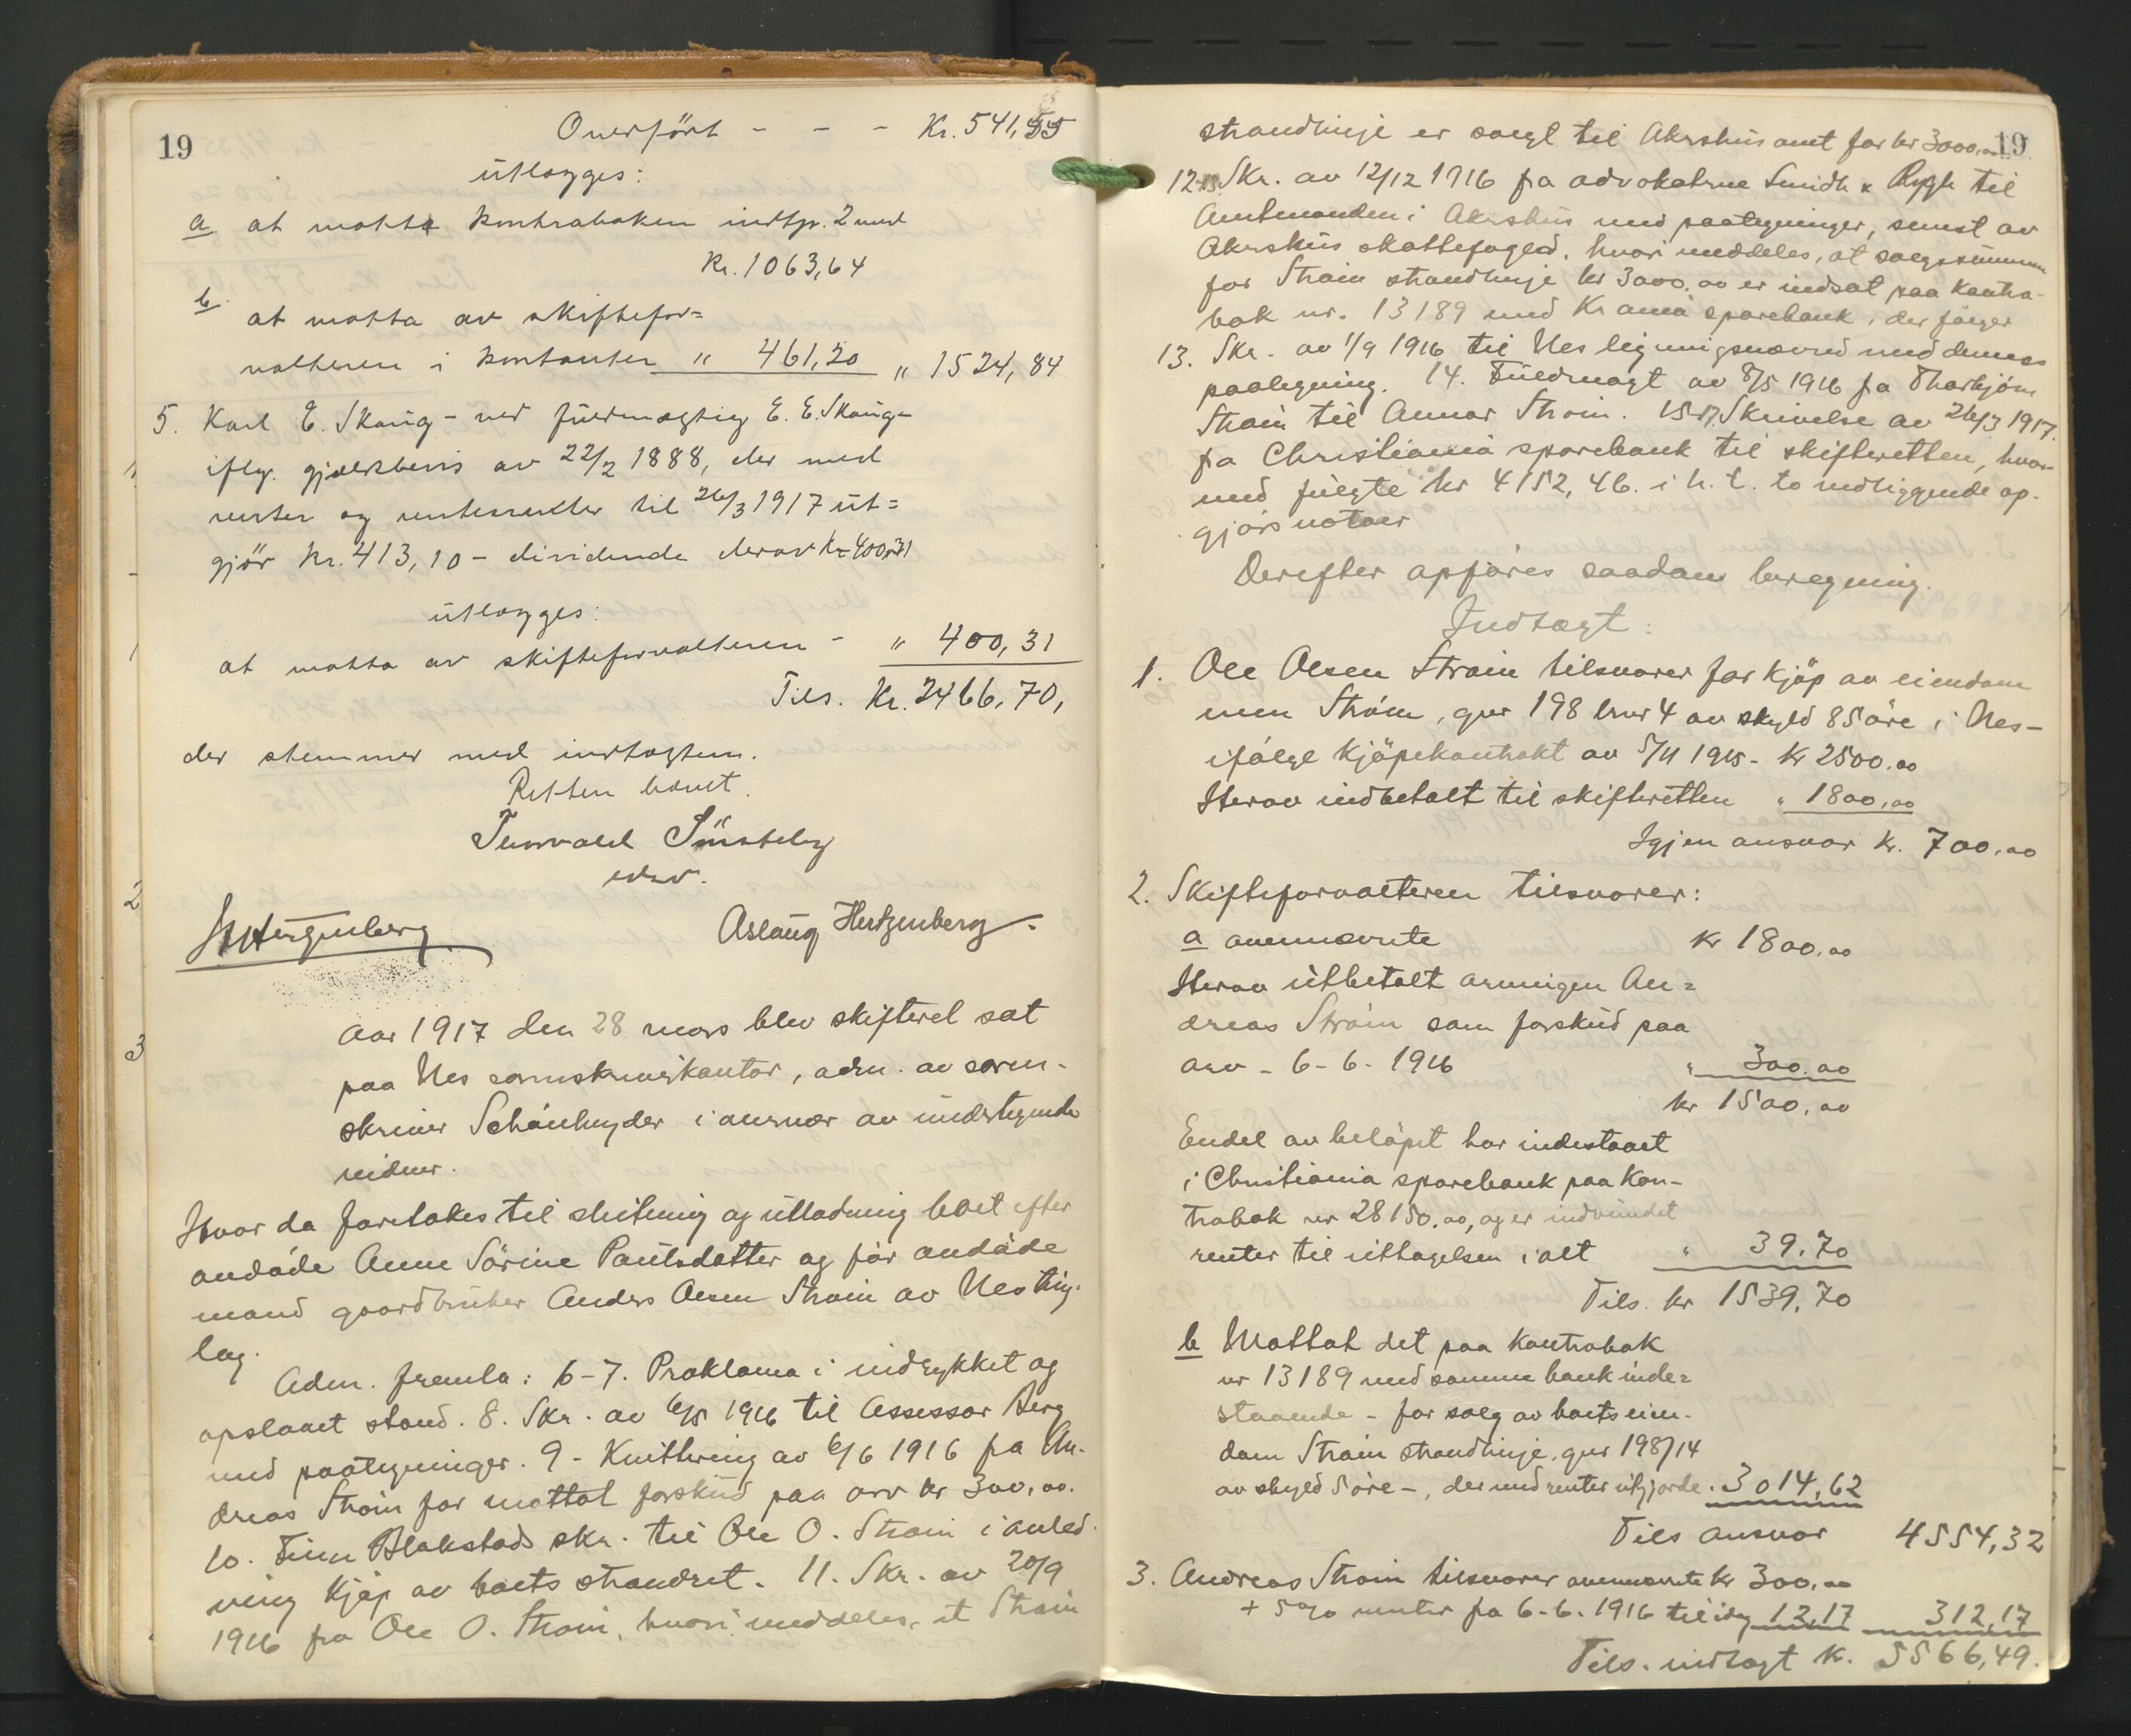 19
Overført - - - Kr. 541,55
utlægges:
a. at motta kontraboken indtgr. 2 med
Kr. 1063,64
b. at motta av skiftefor=
valteren i kontanter " 461,20 " 1524,84
5. Karl E. Skaug - ved fuldmægtig E. E. Skaug -
iflg. gjældsbevis av 22/2 1888, der med
renter og rentesrenter til 26/3 1917 ut=
gjør Kr. 413,10 - dividende derav Kr 400,31
utlægges:
at motta av skifteforvalteren - " 400,31
Tils. Kr. 2466,70,
der stemmer med indtægten.
Retten hævet.
Tenvald
edsv.
Hertzenberg
Aslaug Hertzenberg.
Aar 1917 den 28 mars blev skifteret sat
paa Nes sorenskriverkontor, adm. av soren-
skriver Schönheyder i overvær av undertegnede
vidner.
Hvor da foretokes til slutning og utlodning boet efter
avdøde Anne Sørine Paulsdatter og før avdøde
mand gaardbruker Anders Olsen Strøm av Nes ting-
lag.
Adm. fremla: 6-7. Proklama i indrykket og
opslaaet stand. 8. Skr. av 6/5 1916 til Assessor Berg
med paategninger. 9 - Kvittering av 6/6 1916 fra An-
dreas Strøm for mottat forskud paa arv kr 300,00.
10. Finn Blakstads skr. til Ole O. Strøm i anled-
ning kjøp av boets strandret. 11. Skr. av 20/9
1916 fra Ole O. Strøm, hvori meddeles, at Strøm
19
strandlinje er solgt til Akershus amt for kr 3000,00
12. Skr. av 12/12 1916 fra advokaterne Smidh & Rygh til
Amtmanden i Akershus med paategninger, senest av
Akershus skattefoged, hvori meddeles, at salgssummen
for Strøm strandlinje kr 3000,00 er indsat paa kontra-
bok nr. 13189 med Kr.ania sparebank, der følger
13. Skr. av 1/9 1916 til Nes ligningsnævnd med dennes
paategning. 14. Fuldmagt av 8/5 1916 fra Thorbjørn
Strøm til Annar Strøm. 15-17. Skrivelse av 26/3 1917.
fra Christiania sparebank til skifteretten, hvor-
med fulgte kr 4152,46. i h. t. to vedliggende op-
gjørsnotaer
Derefter opføres saadan beregning.
Indtægt:
1. Ole Olsen Strøm tilsvarer for kjøp av eiendom
men Strøm, gnr 198 bnr 4 av skyld 85 øre i Nes -
ifølge kjøpekontrakt av 5/11 1915 - kr 2500.00
Herav indbetalt til skifteretten " 1800,00
Igjen ansvar kr. 700.00
2. Skifteforvalteren tilsvarer:
a ovennævnte kr 1800.00
Herav utbetalt arvingen An=
dreas Strøm som forskud paa
arv - 6-6-1916 " 300.00
kr 1500,00
Endel av beløpet har indestaaet
i Christiania sparebank paa kon-
trabok nr 28150.00, og er indvundet
renter til uttagelsen ialt " 39.70
Tils. kr 1539,70
b Mottat det paa kontrabok
nr 13189 med samme bank inde=
staaende - for salg av boets eien-
dom Strøm strandlinje, gnr 198/14
av skyld 5 øre -, der med renter utgjorde. 3014,62
Tils ansvar 4554,32
3. Andreas Strøm tilsvarer ovennævnte kr 300,00
+ 5% renter fra 6-6-1916 til idag 12,17 312,17
Tils. indtægt kr. 5566,49.